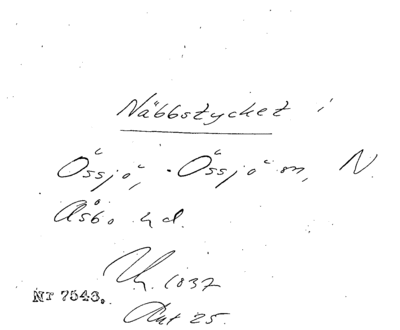 Näbbstycket i
Össjö, Össjö sn, N.
Åsbo hd.
1037
Nr 7543.
25.